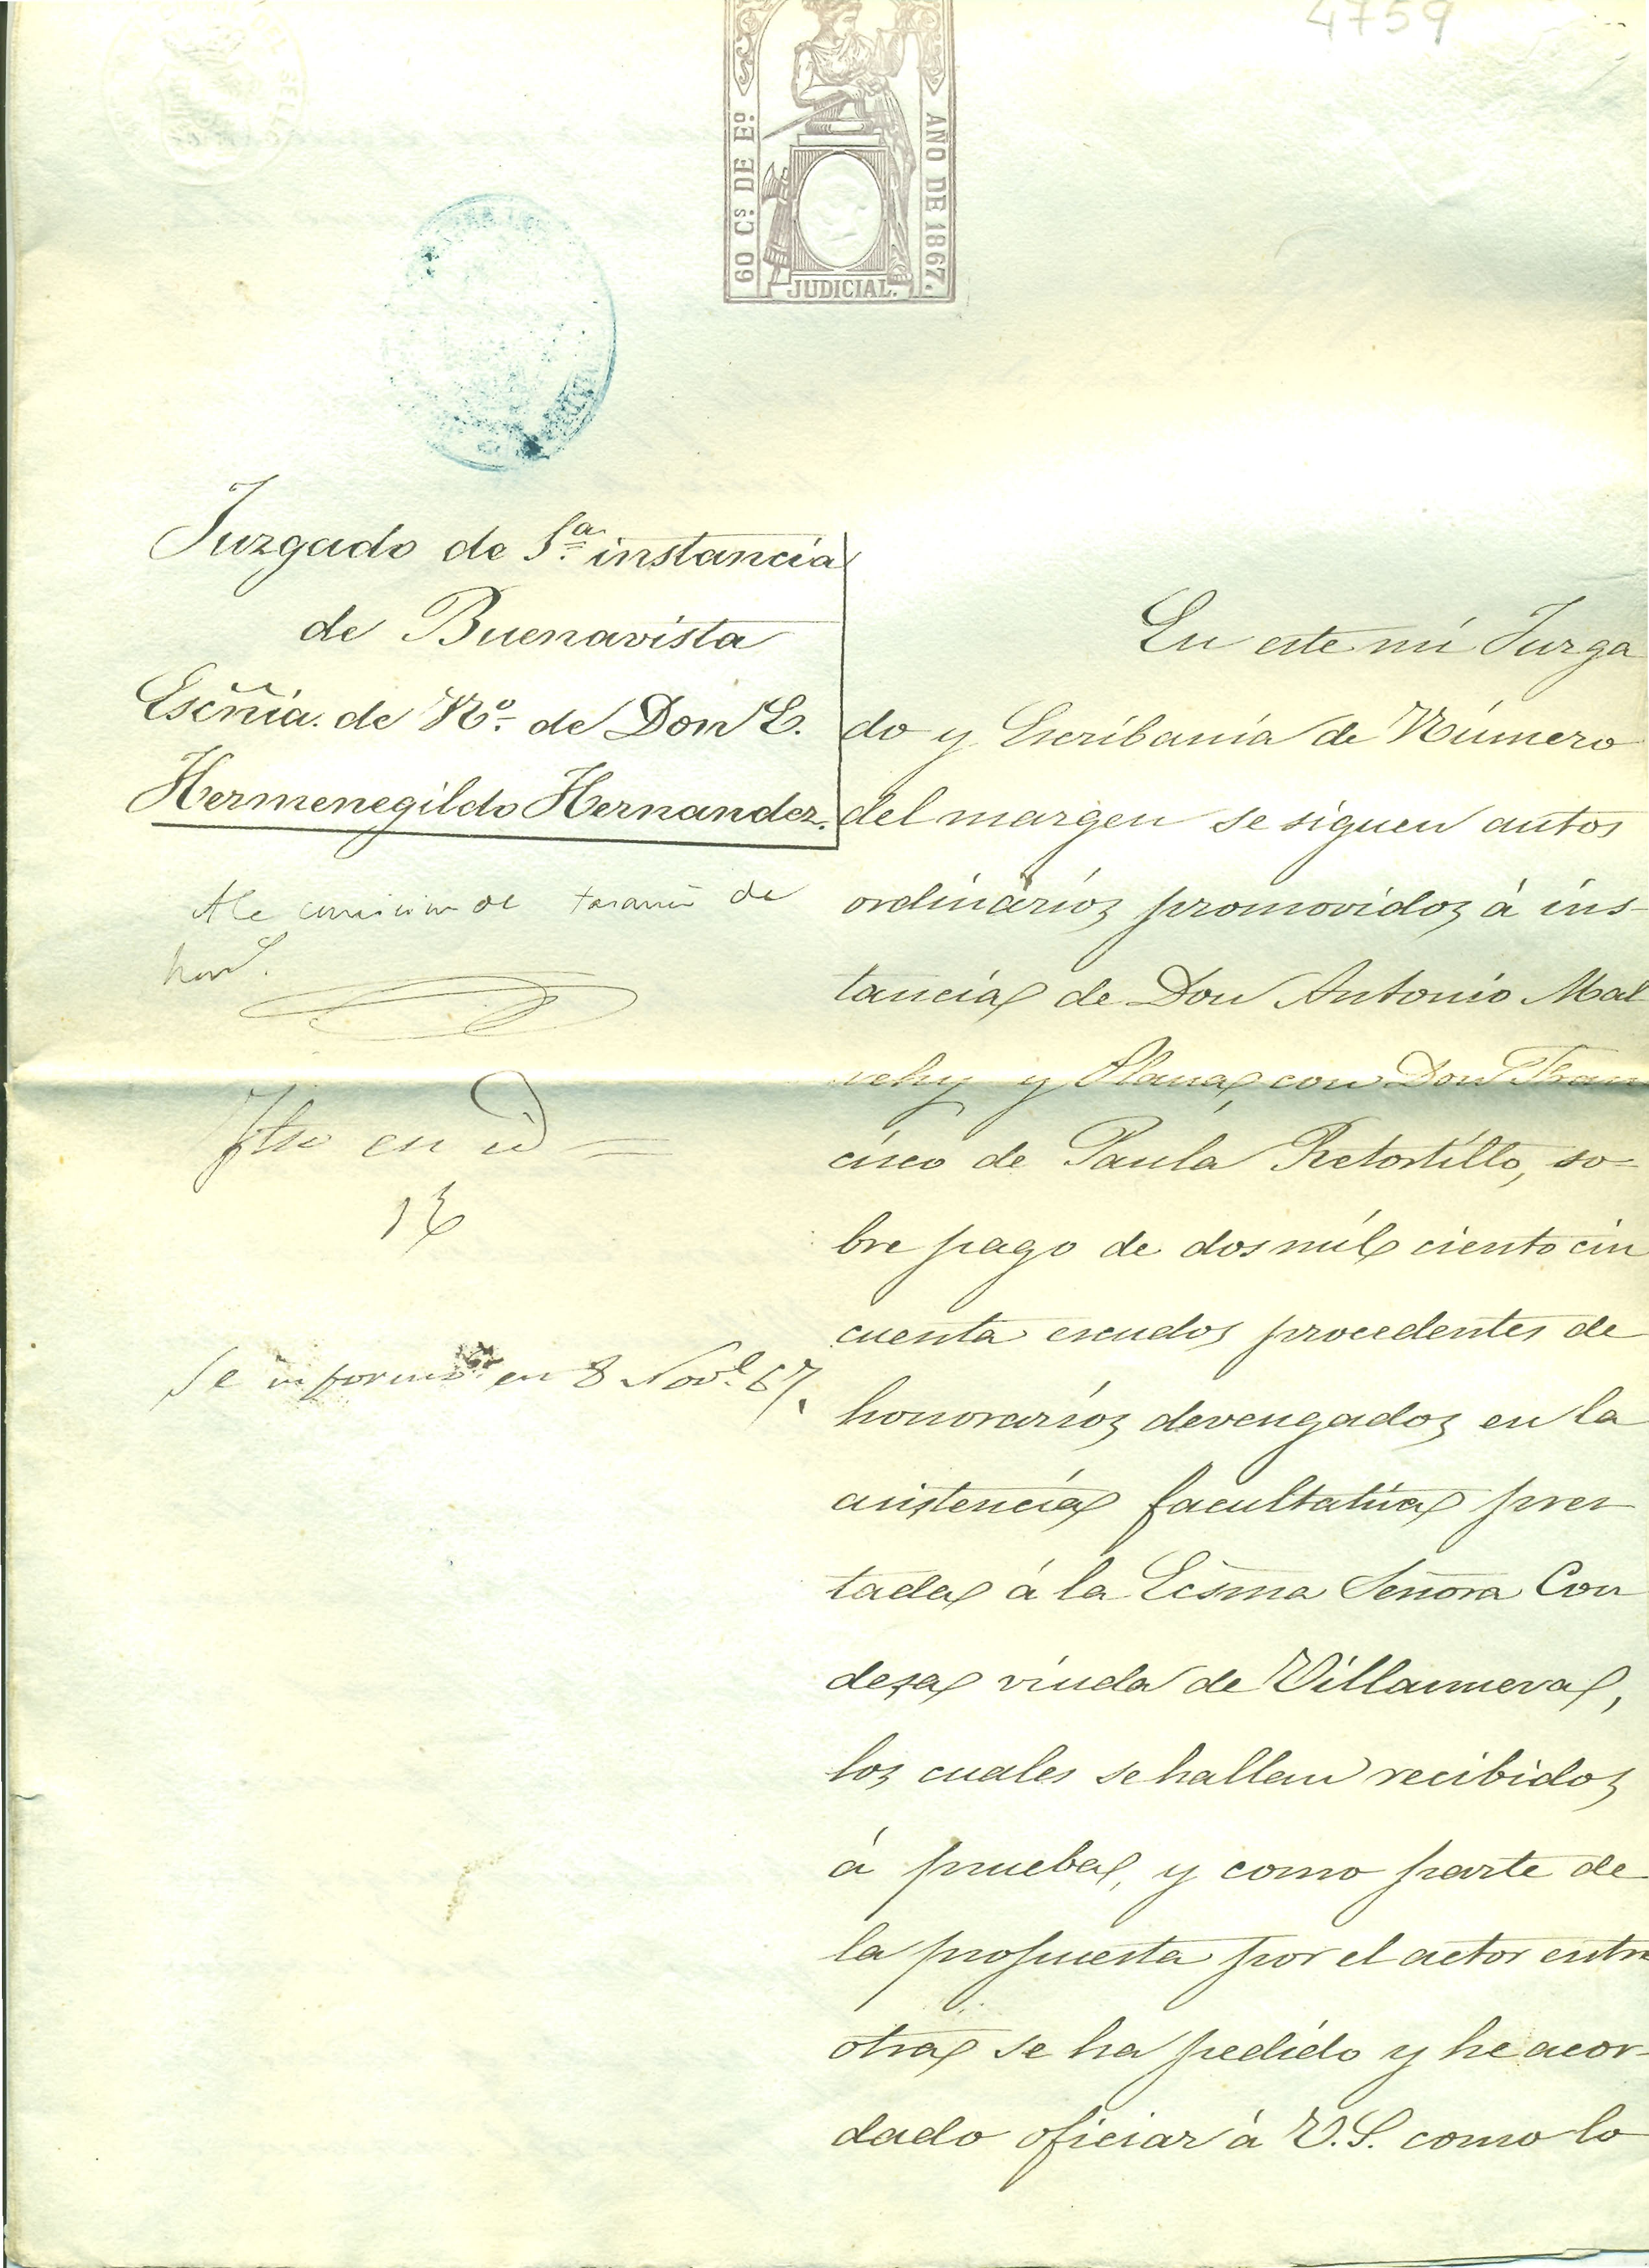 4759
60 Cs. DE Eº
AÑO DE 1867.
JUDICIAL.
Juzgado de 1ª instancia
de Buenavista
Escñía. de Nº de Don E.
Hermenegildo Hernandez.
En este mi Juzga
do y Escribanía de Número
del margen se siguen autos
ordinarios promovidos á ins-
tancia de Don Antonio Mal
vehy y Plana, con Don Fran
cisco de Paula Retortillo, so-
bre pago de dos mil ciento cin
cuenta escudos procedentes de
honorarios devengados en la
asistencia facultativa pres
tada á la Ecsma Señora Con
desa viuda de Villanueva,
los cuales se hallan recibidos
á prueba, y como parte de
la propuesta por el actor entre
otras se ha pedido y he acor-
dado oficiar á V.S. como lo
A la comision de de
hono.s
en id
Se informó en 8 Nove. 67.